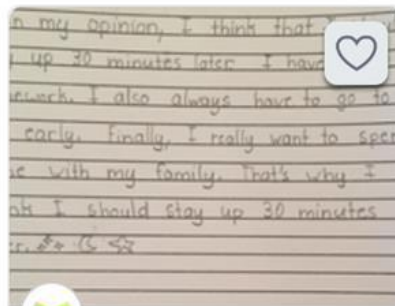 my opinion, I think that
up 30 minutes later I have
I also always have to go to
early. Finally, I really want to
with my family. That's why I
I should stay up 30 minutes